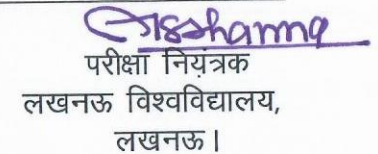 परीक्षा नियंत्रक
लखनऊ विश्वविद्यालय,
लखनऊ।